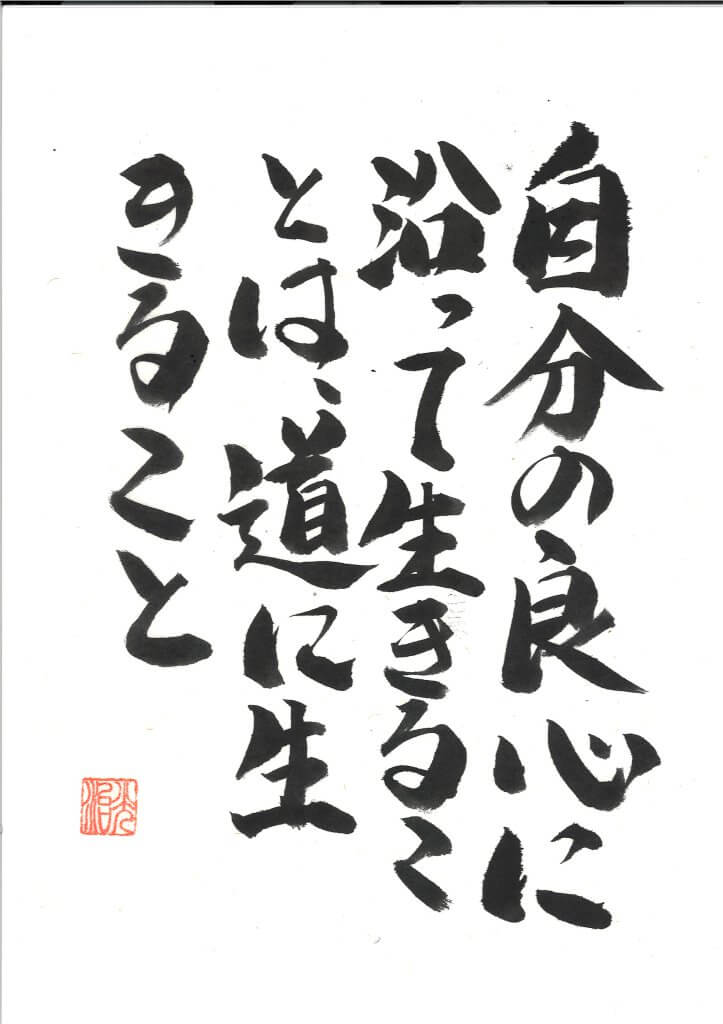 自分の良心に
沿って生きるこ
とは、道に生
きること